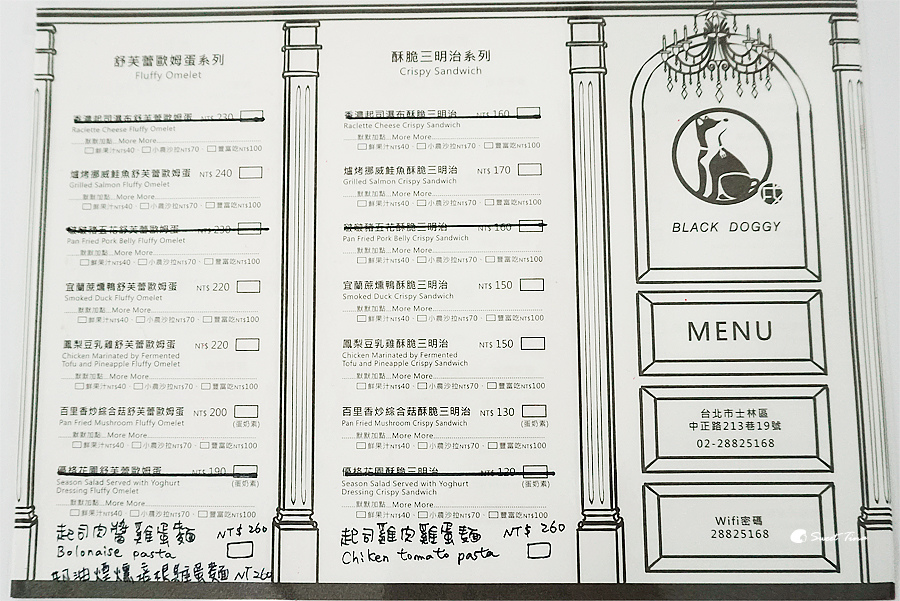 舒芙蕾歐姆蛋系列
Fluffy Omelet
香濃起司瀑布舒芙蕾歐姆蛋 NT$ 230
Raclette Cheese Fluffy Omelet
默默加點...More More
鮮果汁NT$40、小農沙拉NT$70、豐富吃NT$100
爐烤挪威鮭魚舒芙蕾歐姆蛋 NT$ 240
Grilled Salmon Fluffy Omelet
默默加點...More More
鮮果汁NT$40、小農沙拉NT$70、豐富吃NT$100
啵啵豬五花舒芙蕾歐姆蛋 NT$ 230
Pan Fried Pork Belly Fluffy Omelet
默默加點...More More
鮮果汁NT$40、小農沙拉NT$70、豐富吃NT$100
宜蘭蔗燻鴨舒芙蕾歐姆蛋 NT$ 220
Smoked Duck Fluffy Omelet
默默加點...More More
鮮果汁NT$40、小農沙拉NT$70、豐富吃NT$100
鳳梨豆乳雞舒芙蕾歐姆蛋 NT$ 220
Chicken Marinated by Fermented
Tofu and Pineapple Fluffy Omelet
默默加點...More More
鮮果汁NT$40、小農沙拉NT$70、豐富吃NT$100
百里香炒綜合菇舒芙蕾歐姆蛋 NT$ 200
Pan Fried Mushroom Fluffy Omelet (蛋奶素)
默默加點...More More
鮮果汁NT$40、小農沙拉NT$70、豐富吃NT$100
優格花園舒芙蕾歐姆蛋 NT$ 190
Season Salad Served with Yoghurt (蛋奶素)
Dressing Fluffy Omelet
默默加點...More More
鮮果汁NT$40、小農沙拉NT$70、豐富吃NT$100
起司肉醬雞蛋麵 NT$ 260
Bolonaise pasta
油煙燻 根雞蛋麵 NT 260
酥脆三明治系列
Crispy Sandwich
香濃起司瀑布酥脆三明治 NT$ 160
Raclette Cheese Crispy Sandwich
默默加點...More More
鮮果汁NT$40、小農沙拉NT$70、豐富吃NT$100
爐烤挪威鮭魚酥脆三明治 NT$ 170
Grilled Salmon Crispy Sandwich
默默加點...More More
鮮果汁NT$40、小農沙拉NT$70、豐富吃NT$100
啵啵豬五花酥脆三明治 NT$ 160
Pan Fried Pork Belly Crispy Sandwich
默默加點...More More
鮮果汁NT$40、小農沙拉NT$70、豐富吃NT$100
宜蘭蔗燻鴨酥脆三明治 NT$ 150
Smoked Duck Crispy Sandwich
默默加點...More More
鮮果汁NT$40、小農沙拉NT$70、豐富吃NT$100
鳳梨豆乳雞酥脆三明治 NT$ 150
Chicken Marinated by Fermented
Tofu and Pineapple Crispy Sandwich
默默加點...More More
鮮果汁NT$40、小農沙拉NT$70、豐富吃NT$100
百里香炒綜合菇酥脆三明治 NT$ 130
Pan Fried Mushroom Crispy Sandwich (蛋奶素)
默默加點...More More
鮮果汁NT$40、小農沙拉NT$70、豐富吃NT$100
優格花園酥脆三明治 NT$ 120
Season Salad Served with Yoghurt (蛋奶素)
Dressing Crispy Sandwich
默默加點...More More
鮮果汁NT$40、小農沙拉NT$70、豐富吃NT$100
起司雞肉雞蛋麵 NT$ 260
Chiken tomato pasta
BLACK DOGGY
MENU
台北市士林區
中正路213巷19號
02-28825168
Wifi密碼
28825168
Sweet Time